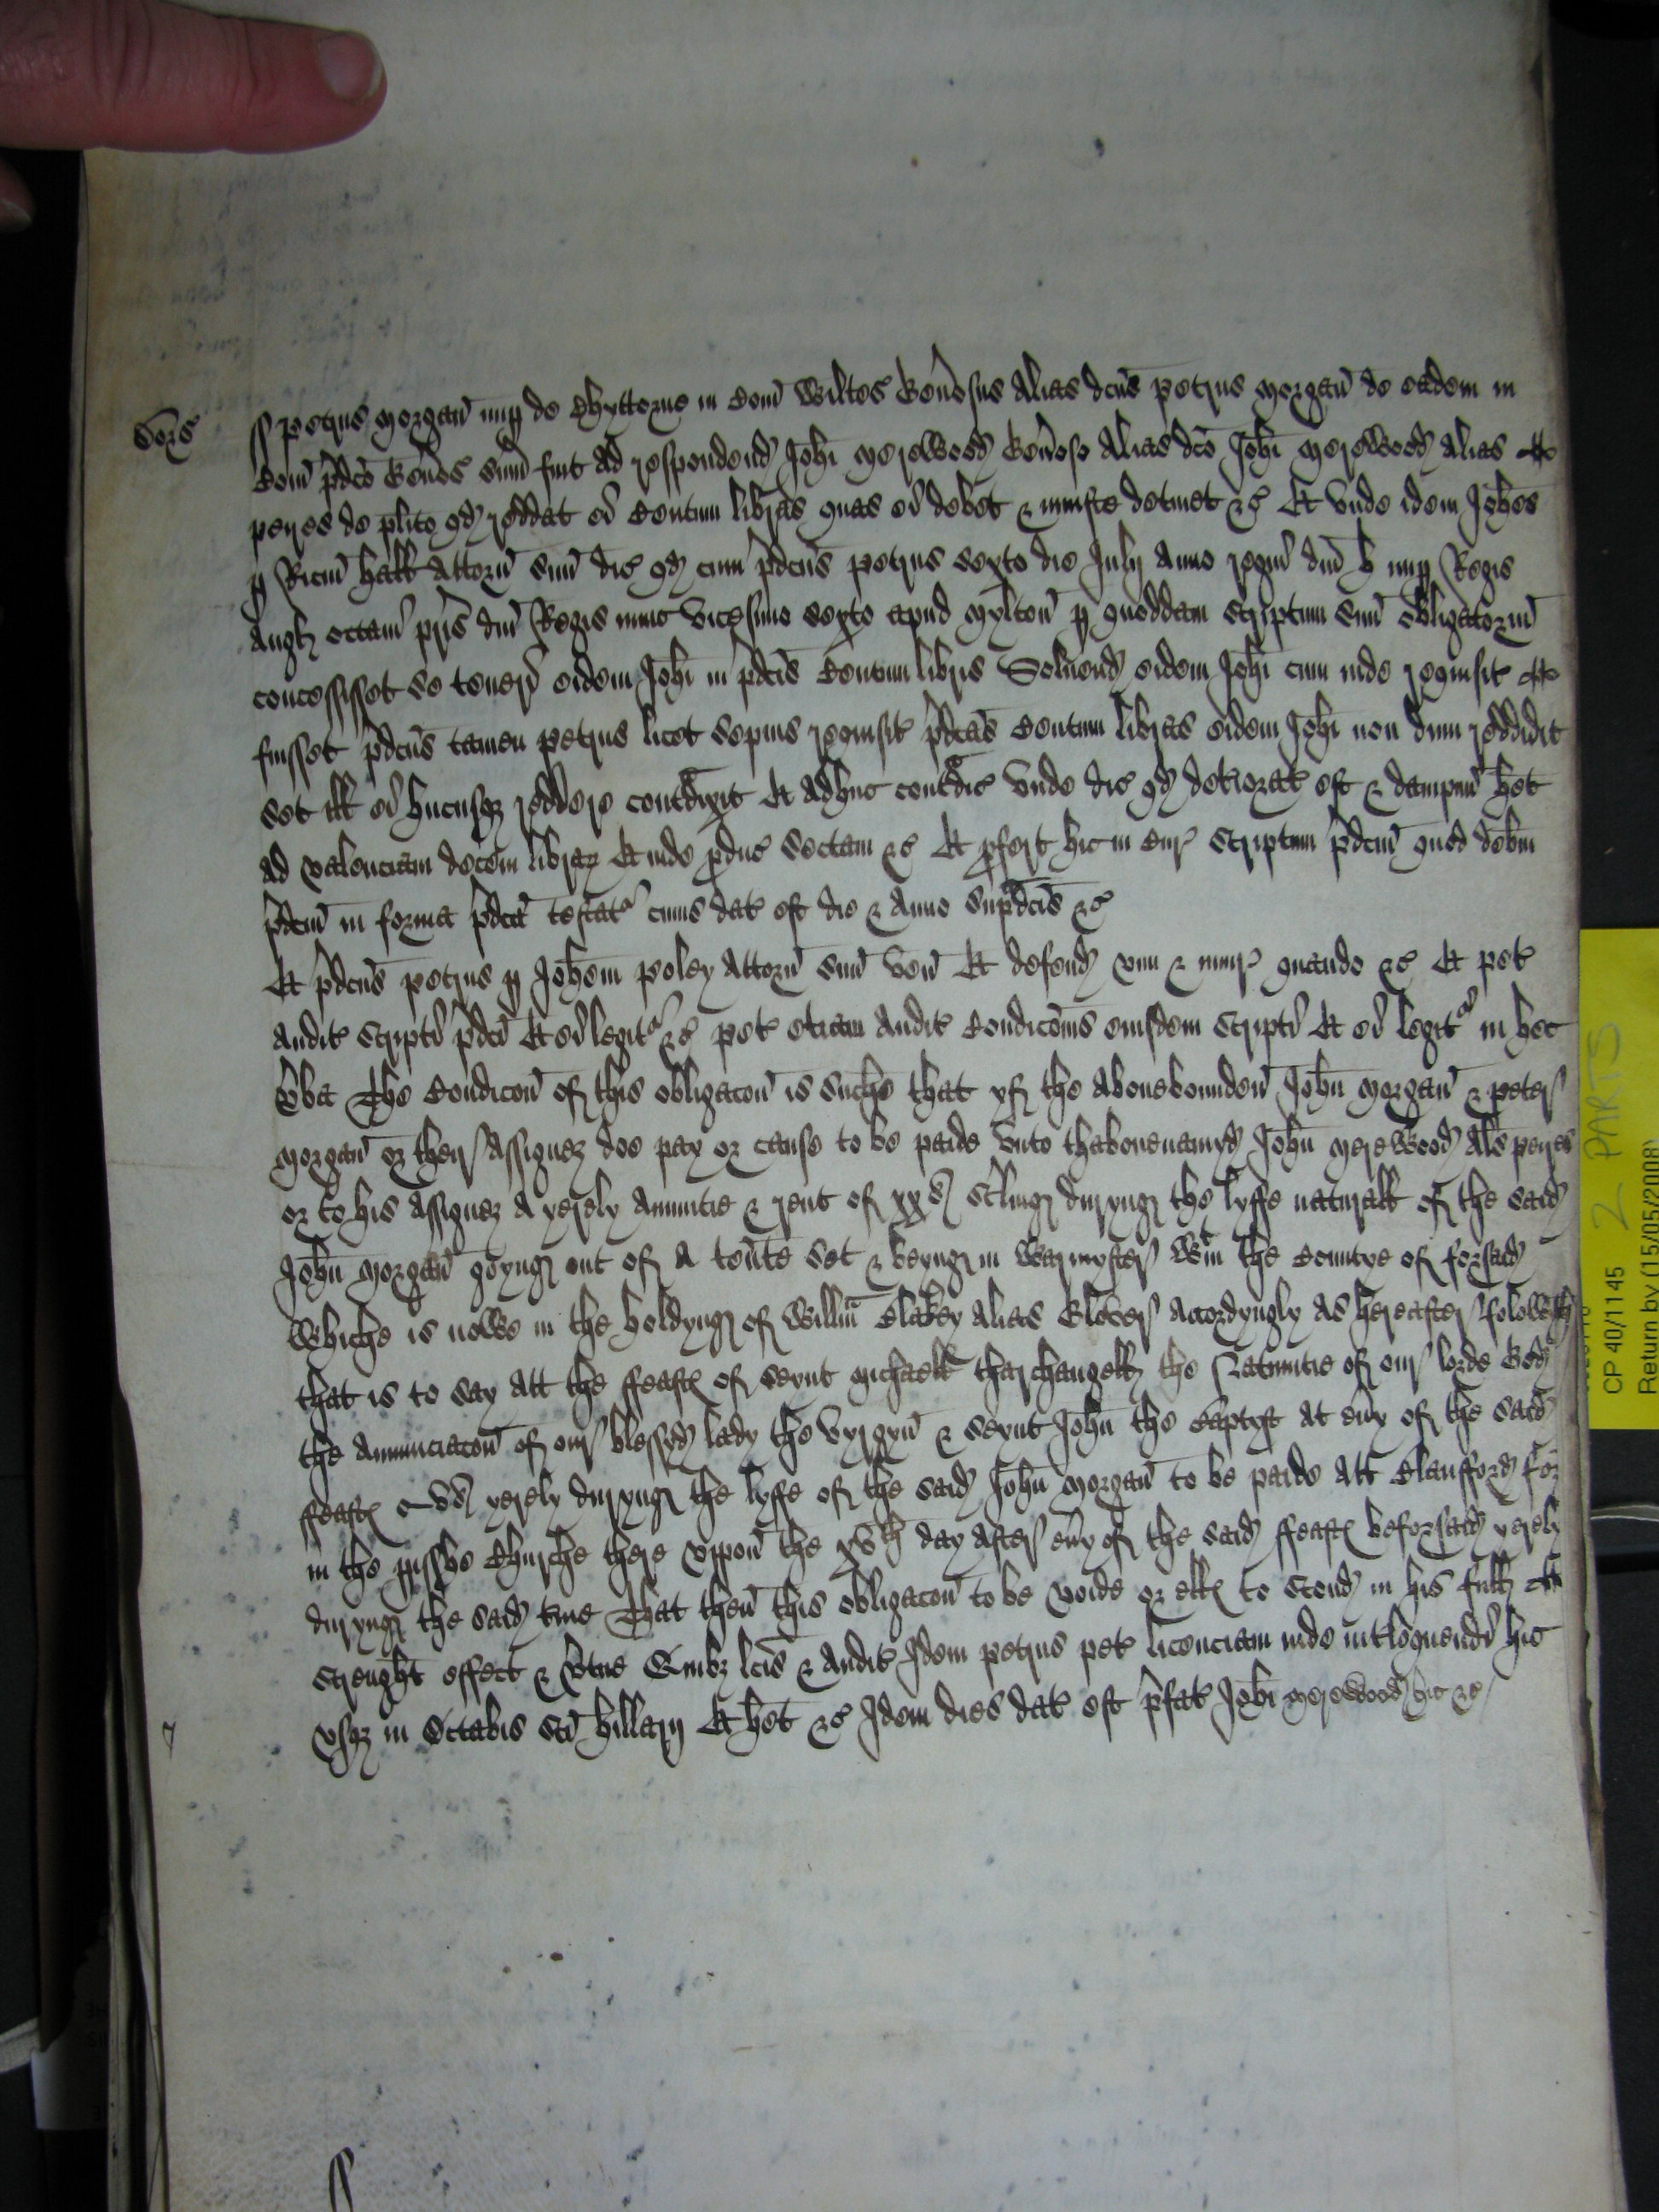 Dors
Petrus Morgan nup de Chyttorne in Com Wiltes Generosus Alias dcus Petrus Morgan de eadem in
Com pdco Genos sum fuit ad respondend Johi Merewood Generoso Alias dco Johi Merewood Alias
peres de plito qd reddat ei Centum libras quas ei debet & iniuste detinet &c Et unde idem Johes
p Ricm Hall Attorn suu dic qd cum pdcus Petrus sexto die Julij Anno regni dni H nup Regis
Angl octavi pris dni Regis nunc vicesimo sexto apud Mylton p quoddam scriptum suu obligatoriu
concessisset se teneri eidem Johi in pdcis Centum libris Solvend eidem Johi cum inde requisit
fuisset pdcus tamen Petrus licet sepius requisit pdcas Centum libras eidem Johi non dum reddidit
set ill ei hucusq reddere contradixit Et adhuc contradic unde dic qd deteriorat est & dampnu het
ad valenciam decem librar Et inde produc sectam &c Et profert hic in Cur scriptum pdcm quod debm
pdcm in forma pdca testat cuius dat est die & Anno supradcis &c
Et pdcus Petrus p Johem Poley Attorn suu ven Et defend vim & iniur quando &c Et pet
Audit scripti pdci Et ei legit &c pet etiam Audit Condicois eiusdem scripti Et ei legit in hec
vba The Condicon of this obligacon is suche that yf the Abovebounden John Morgan & Peter
Morgan or their Assignez doe pay or cause to be paide unto thabovenamyd John Merewood Als Peres
or to his Assignez A yerely Annuitie & rent of xx s sterling duryng the lyffe naturall of the said
John Morgan goyng out of A tente set & beyng in Warmyster wtin the Countye of forsaid
Whiche is nowe in the holdyng of Willm Blakey Alias Glover Accordyngly As hereafter foloweth
that is to say Att the ffeast of seynt Michaell tharchangell the Natiuitie of our lorde God
the Annunciacon of our blessyd lady the Vyrgyn & seynt John the Baptyst At euy of the said
ffeast vs yerely duryng the lyffe of the said John Morgan to be paide Att Blanfford for
in the pisshe Churche there Uppon the xvth day After euy of the said ffeast beforsaid yerely
duryng the said tme That then this obligacon to be voide or ell to stond in his full
strenght effect & vtue Quibz lcis & Audit Idem Petrus pet licenciam inde intloquendi hic
usq in Octabis sci Hillarij Et het &c Idem dies dat est pfat Johi Merewood hic &c
CP 40/1145 2 PARTS
Return by (15/05/2008)